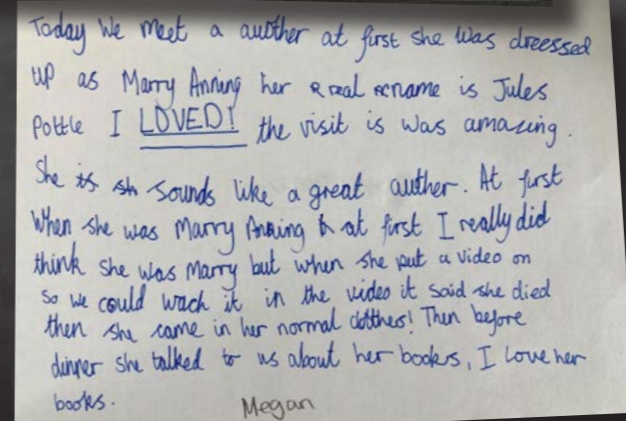 Today We meet a auother at first she was dreessed
up as Marry Anning her real name is Jules
Pottle I LOVED! the visit is was amazing.
She sounds like a great auther. At first
When she was Marry Anning at first I really did
think she was Marry but when she put a video on
so we could wach it in the video it said she died
then she came in her normal clotthes! Then before
dinner she talked to us about her books, I love her
books.
Megan